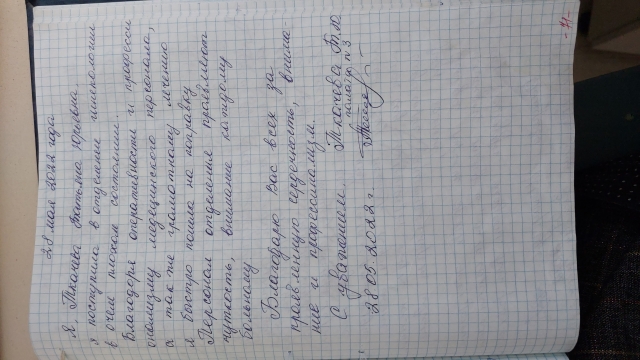 28 мая 2022 года
Я Ткачева Татьяна Юриевна
поступила в отделение гинекологии
в очем плохом состояние.
Благодоря оперативности и професси
онализму медецинского персонала,
а так же грамотному лечению
я быстро пошла на поправку
Персонал отделения проявляют
чуткость, внимание каждому
больному
Благодарю Вас всех за
проявленную сердечность, внима-
ние и професионализм.
С уважением. Ткачева Т.Ю
палата п 3
28 05. 2022 г.